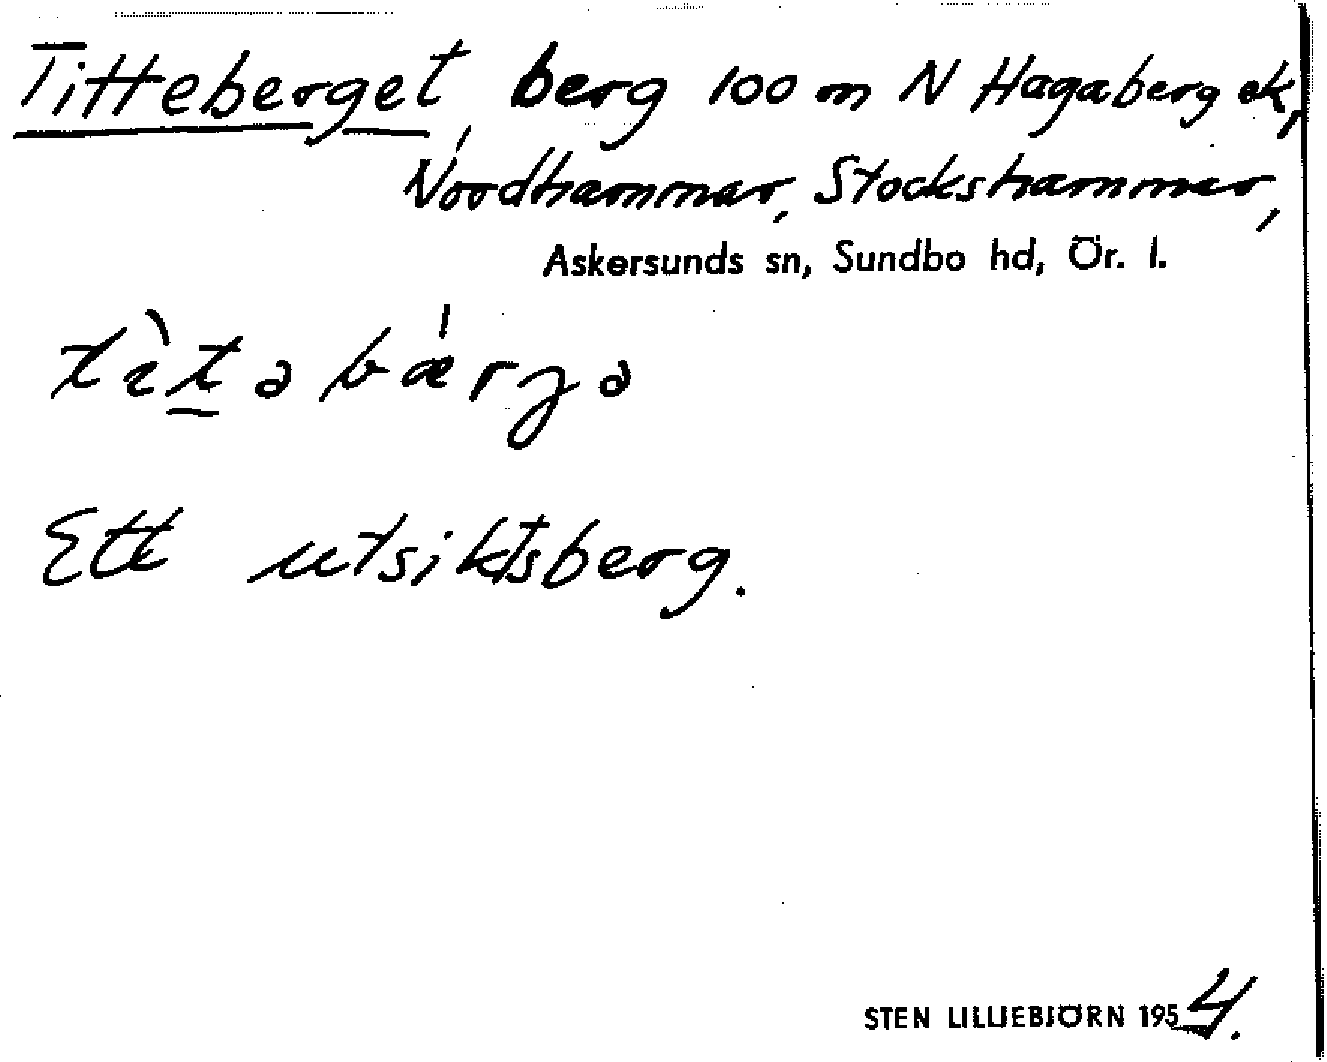 Titteberget, berg 100 m N Hagaberg ek,
Nordhammar, Stockshammar,
Askersunds sn, Sundbo hd, Ör. l.
Ett utsiktsberg.
STEN LILLIEBJÖRN 1954.